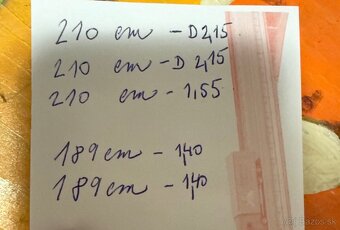 210 cm - D 2,15
210 cm - D 2,15
210 cm - 1,55
189 cm - 1,40
189 cm - 1,40